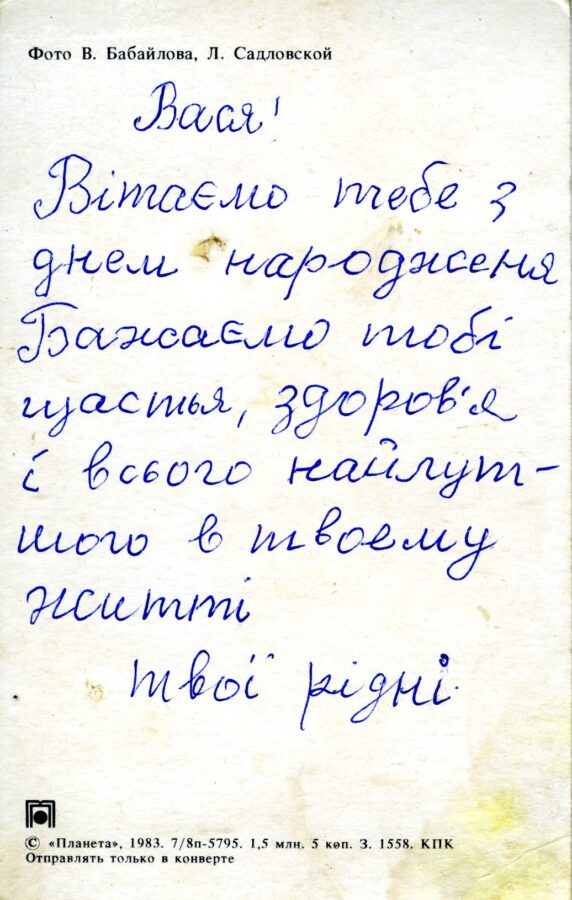 Фото В. Бабайлова, Л. Садловской
Вася!
Вітаємо тебе з
днем народженя
Бажаємо тобі
щастья, здоров'я
і всього найлут-
шого в твоему
житті
твої рідні
© «Планета», 1983. 7/8п-5795. 1,5 млн. 5 коп. З. 1558. КПК
Отправлять только в конверте